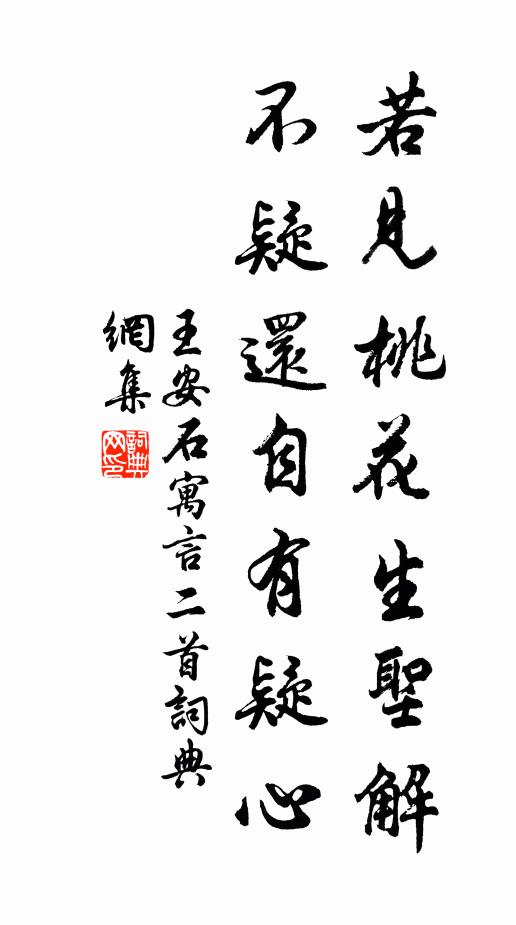 若見桃花生聖解
不疑還自有疑心
王安石寓言二首詞典
網集
詞典
网印